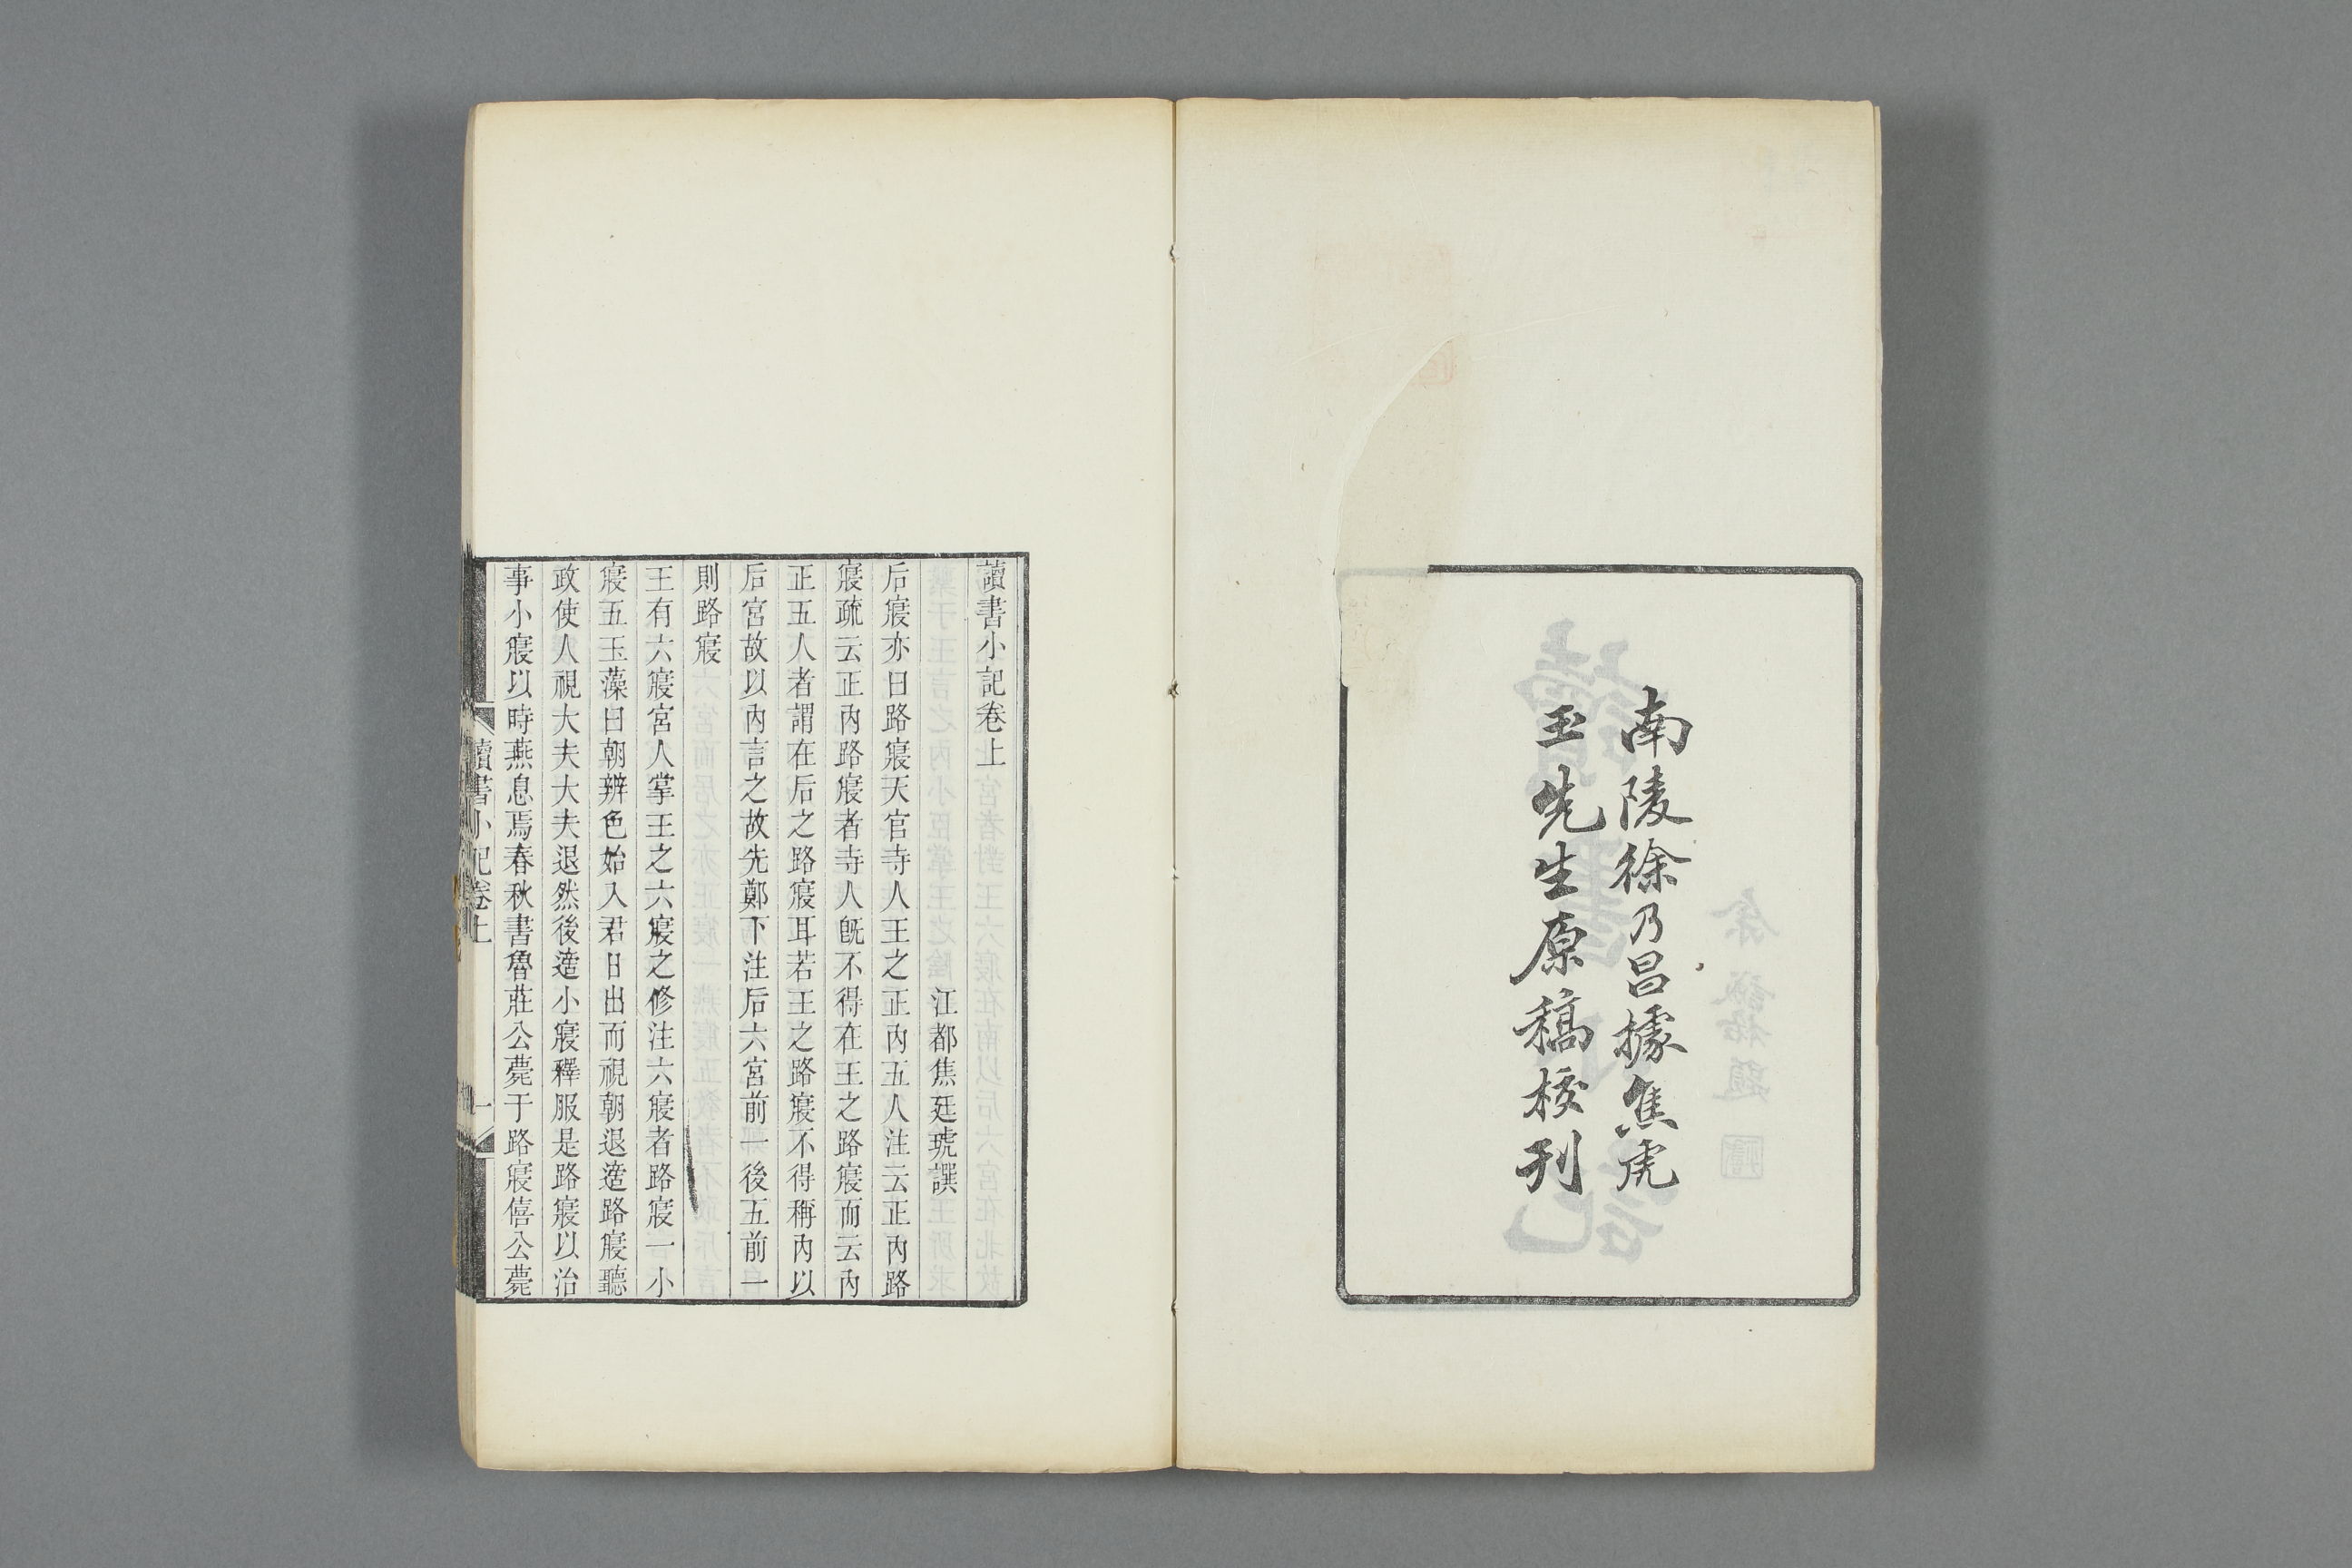 南陵徐乃昌據焦虎
玉先生原稿校刊
讀書小記卷上
江都焦廷琥譔
后寑亦曰路寑天官寺人王之正內五人注云正內路
寑疏云正內路寑者寺人旣不得在王之路寑而云內
正五人者謂在后之路寑耳若王之路寑不得稱內以
后宮故以內言之故先鄭下注后六宮前一後五前一
則路寑
王有六寑宮人掌王之六寑之修注六寑者路寑一小
寑五玉藻曰朝辨色始入君日出而視朝退適路寑聽
政使人視大夫大夫退然後適小寑釋服是路寑以治
事小寑以時燕息焉春秋書魯莊公薨于路寑僖公薨
讀書小記卷上
一